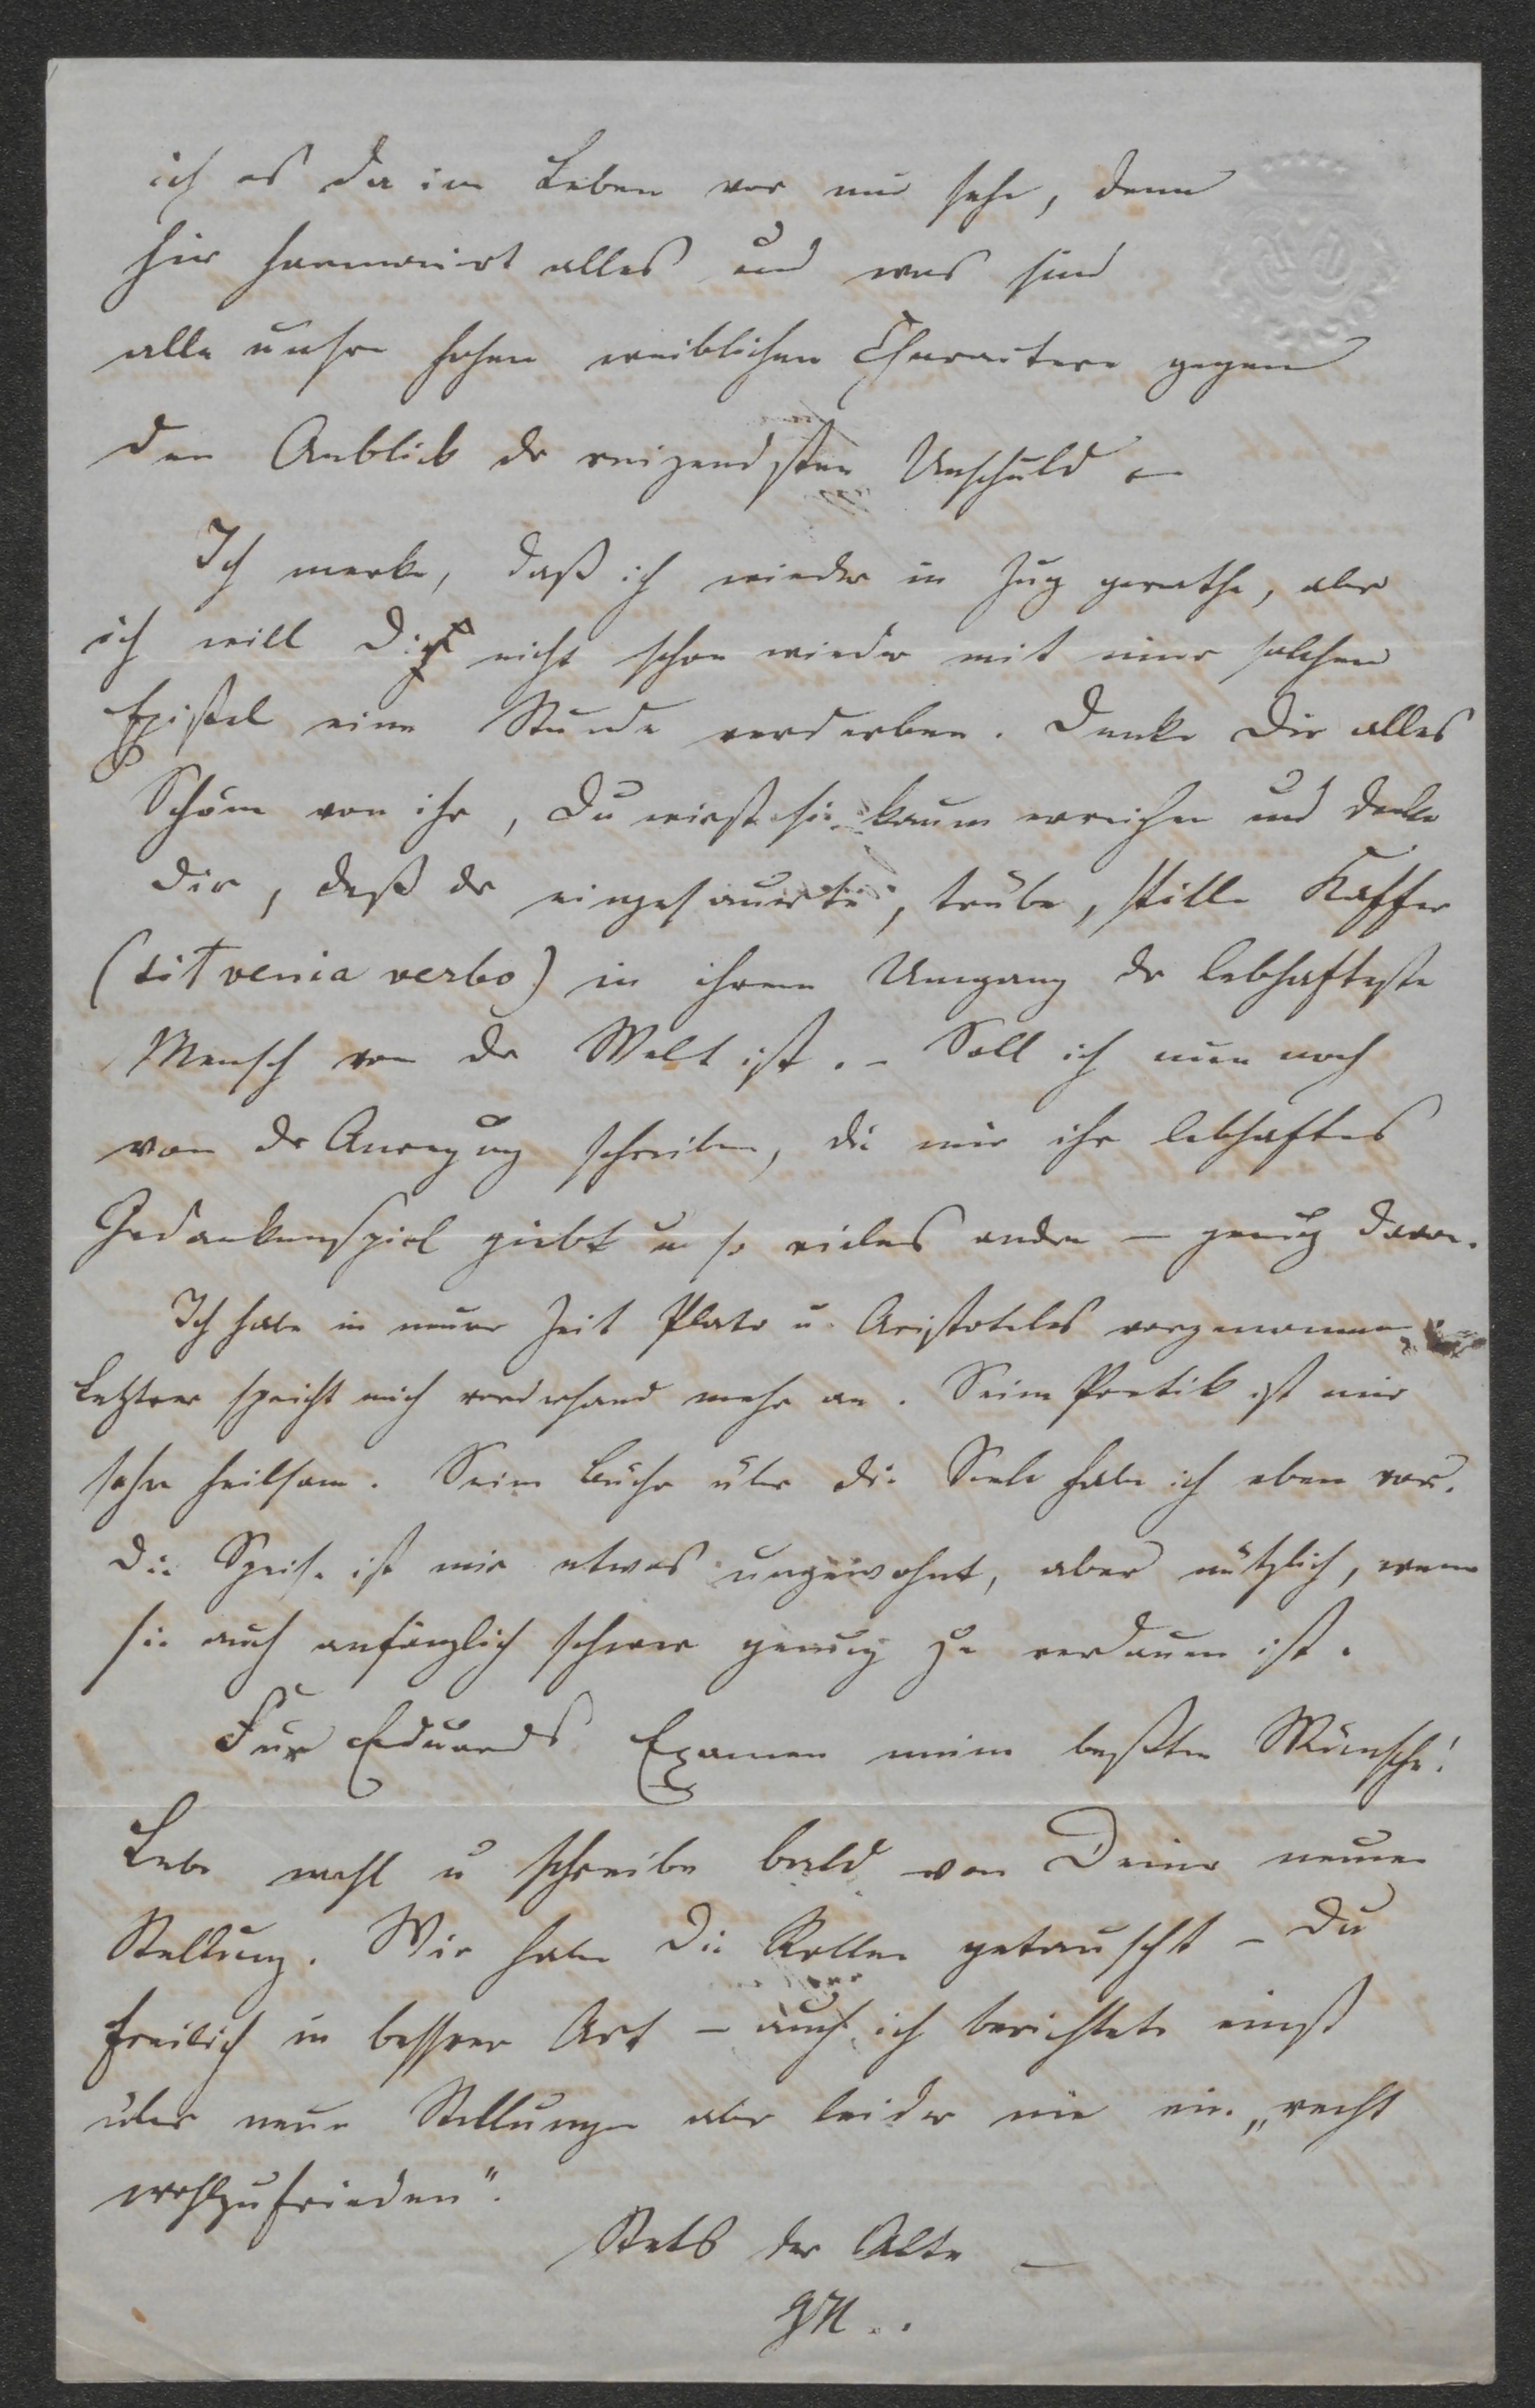 ich es da im Leben vor mir sehe, denn
hier harmonirt alles und was sind
alle unsre hohen weiblichen Charactere gegen
den Anblick der reizendsten Unschuld –
Ich merke, daß ich wieder in Zug gerathe, aber
ich will Dir nicht schon wieder mit einer solchen
Epistel eine Stunde verderben. Denke Dir alles
Schöne von ihr, Du wirst sie kaum erreichen und denke
Dir, daß der eingesauerte, trübe, stille Kaffer
(sit venia verbo) in ihrem Umgang der lebhafteste
Mensch von der Welt ist. – Soll ich nun noch
von der Anregung schreiben, die mir ihr lebhaftes
Gedankenspiel giebt u so vieles andre – genug davon.
Ich habe in neuer Zeit Plato u. Aristoteles vorgenommen
letztrer spricht mich vorderhand mehr an. Seine Poetik ist mir
sehr heilsam. Seine Bücher über die Seele habe ich eben vor.
Die Speise ist mir etwas ungewohnt, aber nützlich, wenn
sie auch anfänglich schwer genug zu verdauen ist.
Für Eduards Examen meine beßten Wünsche!
Lebe wohl u schreibe bald von Deiner neuen
Stellung. Wir haben die Rollen getauscht – Du
freilich in bessrer Art – auch ich berichtete einst
über neue Stellungen aber leider nie ein „recht
wohlzufrieden“.
Stets der Alte –